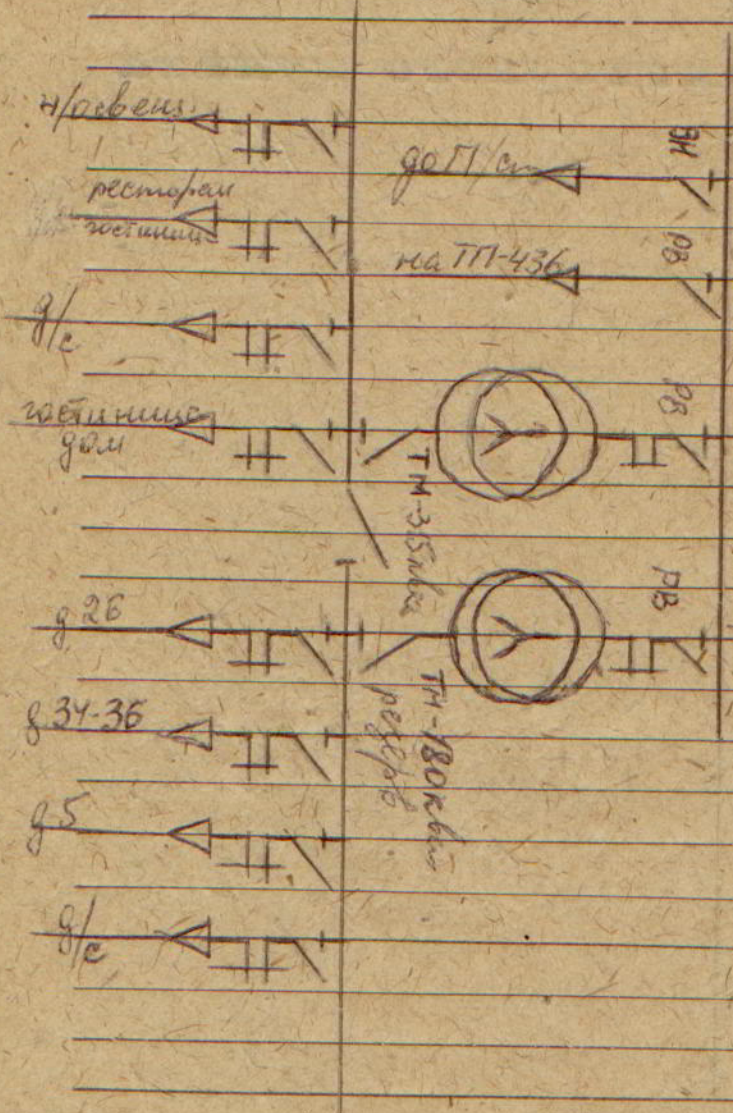 н/освещ.
ресторан
гостиница
д/с
гостиница
дом
д 26
д 34-36
д 5
д/с
до П/ст
на ТП-436
ВН
РВ
РВ
РВ
ТМ-315 ква
ТМ-180 ква
резерв